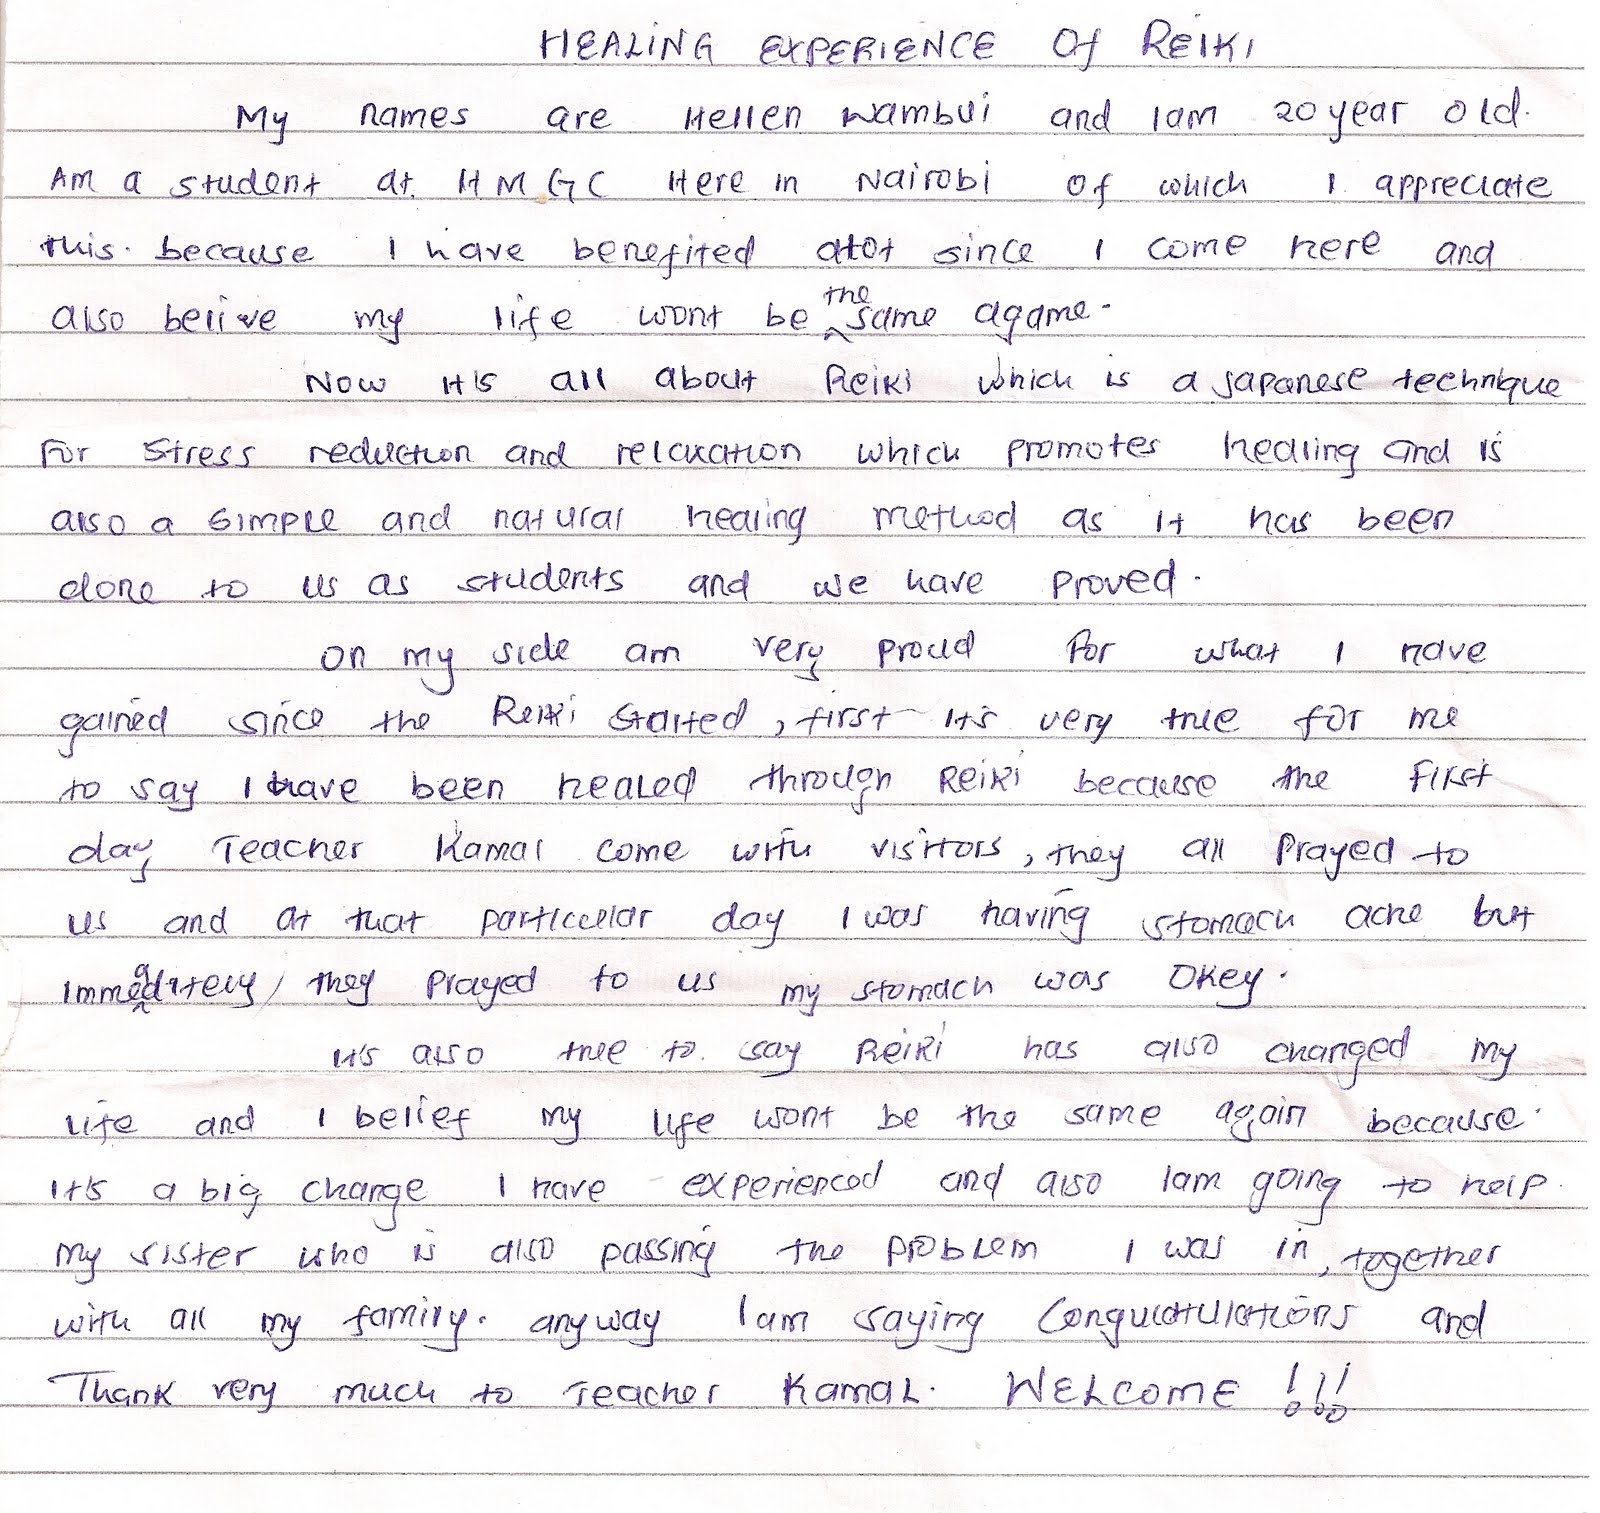 HEALING EXPERIENCE Of REIKI
My names are Hellen Wambui and Iam 20 year old.
Am a student at HMGC Here in Nairobi of which I appreciate
this. because I have benefited alot since I come here and
also belive my life wont be the same agame.
Now it's all about Reiki which is a Japanese technique
For Stress reduction and relaxation which promotes healing and is
also a simple and natural healing method as it has been
done to us as students and we have proved.
On my side am very proud for what I have
gained since the Reiki started, first its very true for me
to say I have been healed through Reiki because the first
day Teacher Kamal come with visitors, they all Prayed to
us and at that particular day I was having stomach ache but
immediately they prayed to us my stomach was Okey.
It's also true to say Reiki has also changed my
life and I belief my life wont be the same again because
It's a big change I have experienced and also Iam going to help
my sister who is also passing the problem I was in, together
with all my family. anyway Iam saying Congulatulations and
Thank very much to Teacher Kamal. WELCOME !!!